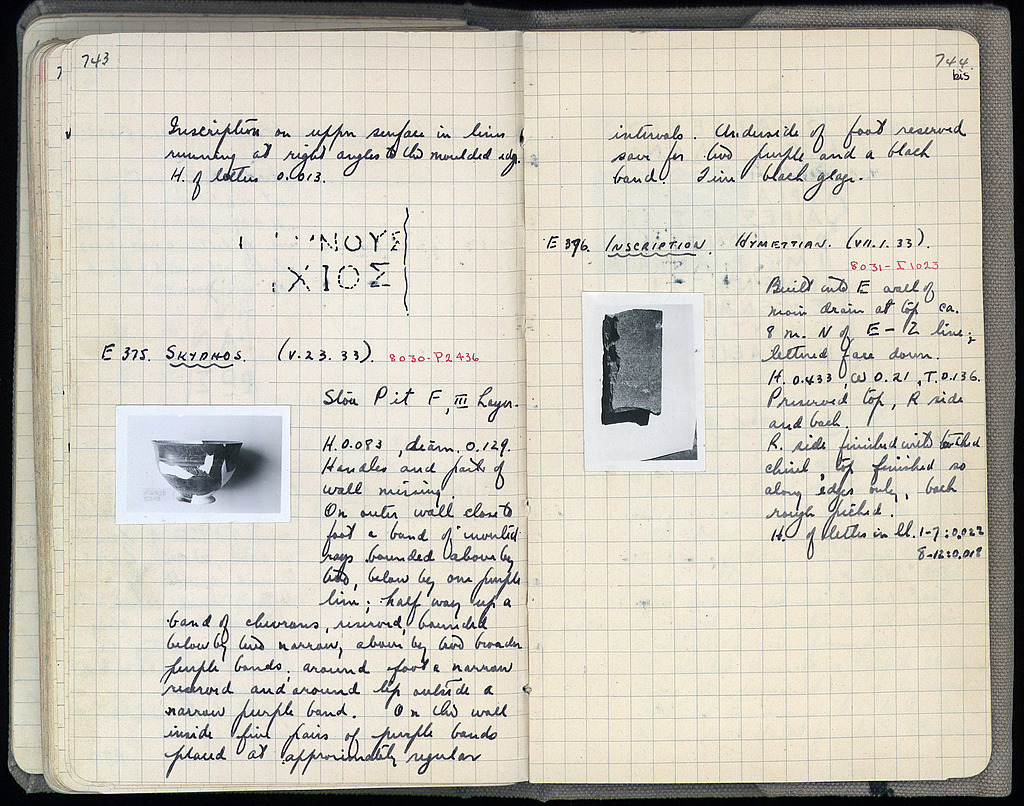 743
Inscription on upper surface in lines
running at right angles to the moulded edge.
H. of letters 0.013.
ΝΟΥΣ
ΧΙΟΣ
E 375. SKYPHOS. (V.23.33). 8030-P2436
Stoa Pit F, III Layer.
H. 0.083, diam. 0.129.
Handles and parts of
wall missing.
On outer wall close to
foot a band of inverted
rays bounded above by
two, below by one purple
line; half way up a
band of chevrons, reserved, bounded
below by two narrow, above by two broader
purple bands; around foot a narrow
reserved and around lip outside a
narrow purple band. On the wall
inside five pairs of purple bands
placed at approximately regular
744
bis
intervals. Underside of foot reserved
save for two purple and a black
band. Fine black glaze.
E 376. INSCRIPTION. HYMETTIAN. (VII.1.33).
8031-I 1023
Built into E wall of
main drain at top ca.
8 m. N of E-Z line;
lettered face down.
H. 0.433, W 0.21, T. 0.136.
Preserved top, R side
and back.
R. side finished with toothed
chisel, top finished so
along edges only, back
rough picked.
H. of letters in ll. 1-7: 0.022
8-12: 0.018